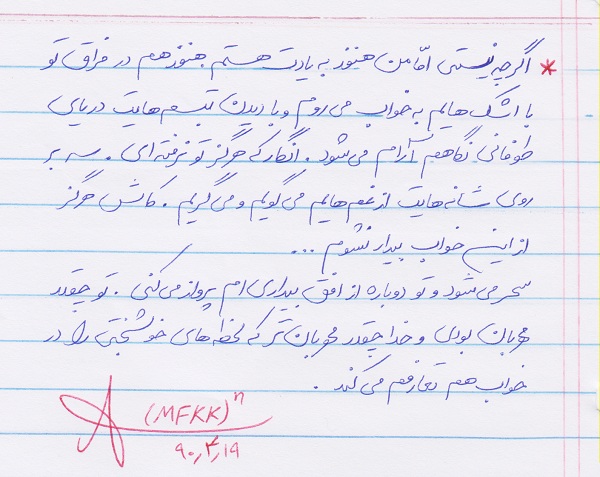 * اگرچه نیستی امّا من هنوز به یادت هستم. هنوز هم در فراق تو
با اشک هایم به خواب می روم و با دیدن تبسم هایت دریایی
طوفانی نگاهم آرام می شود. انگار که هرگز تو نرفته ای. سه بر
روی شانه هایت از غم هایم می گویم و می گریم. کاش هرگز
از این خواب بیدار نشوم ...
سحر می شود و تو دوباره از افق بیداری ام پرواز می کنی. تو چقدر
مهربان بودی و خدا چقدر مهربان تر که لحظه های خوشبختی را در
خواب هم تعارفم می کند.
(MFKK)ⁿ
۹۰,۴,۱۹